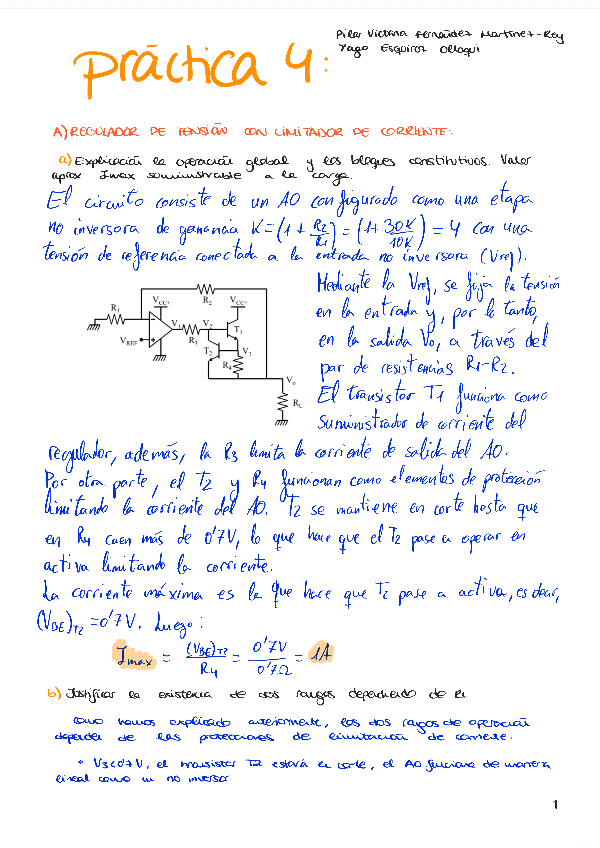 Pilar Victoria Fernández Martínez-Rey
Yago Esquiroz Olloqui
Práctica 4:
A) REGULADOR DE TENSIÓN CON LIMITADOR DE CORRIENTE:
a) Explicación la operación global y los bloques constitutivos. Valor
aprox Imax suministrable a la carga.
El circuito consiste de un AO configurado como una etapa
no inversora de ganancia K = (1 + R2/R1) = (1 + 30K/10K) = 4 con una
tensión de referencia conectada a la entrada no inversora (Vref).
Mediante la Vref, se fija la tensión
en la entrada y, por lo tanto,
en la salida Vo, a través del
par de resistencias R1-R2.
El transistor T1 funciona como
suministrador de corriente del
R1
VCC+
R2
VCC+
VREF
V1
R3
V2
T1
T2
V3
R4
Vo
RL
regulador, además, la R3 limita la corriente de salida del AO.
Por otra parte, el T2 y R4 funcionan como elementos de protección
limitando la corriente del AO. T2 se mantiene en corte hasta que
en R4 caen más de 0'7V, lo que hace que el T2 pase a operar en
activa limitando la corriente.
La corriente máxima es la que hace que T2 pase a activa, es decir,
(VBE)T2 = 0'7V. Luego:
Imax = (VBE)T2 / R4 = 0'7V / 0'7Ω = 1A
b) Justificar la existencia de dos rangos dependiendo de RL
como hemos explicado anteriormente, los dos rangos de operación
depender de las protecciones de limitación de corriente.
• V3<0'7V, el transistor T2 estará en corte, el AO funciona de manera
lineal como un no inversor
1